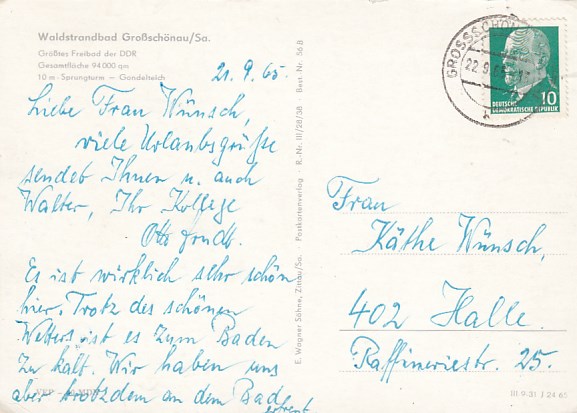 Waldstrandbad Großschönau/Sa.
Größtes Freibad der DDR
Gesamtfläche 94 000 qm
10 m-Sprungturm – Gondelteich
21.9.65.
Liebe Frau Wünsch,
viele Urlaubsgrüße
sendet Ihnen u. auch
Walter, Ihr Kollege
Otto
Es ist wirklich sehr schön
hier. Trotz des schönen
Wetters ist es zum Baden
zu kalt. Wir haben uns
aber trotzdem an dem Bad
erfreut
E. Wagner Söhne, Zittau/Sa. Postkartenverlag · R.-Nr. III/28/38 Best.-Nr. 56 B
GROSSSCHÖN
22.9.65
DEUTSCHE
DEMOKRATISCHE REPUBLIK
10
Frau
Käthe Wünsch,
402 Halle.
Raffineriestr. 25.
III-9-21 J 24 65